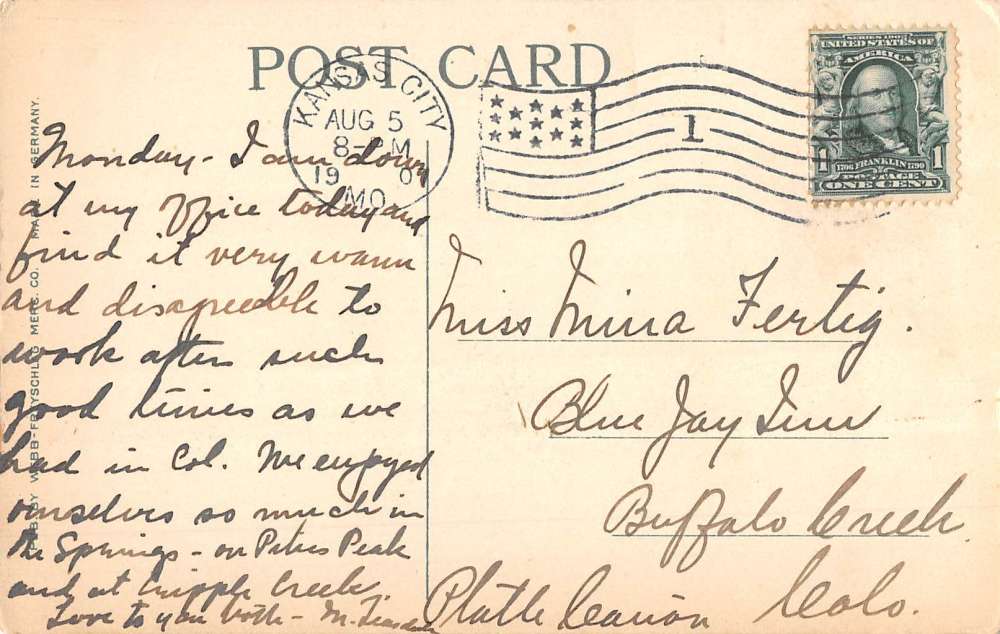 POST CARD
KANSAS CITY
AUG 5
8-PM
19 0
MO.
1
SERIES 1902
UNITED STATES OF
AMERICA
1706 FRANKLIN 1790
POSTAGE
1 1
ONE CENT
MERC. CO. MADE IN GERMANY.
Monday - I am down
at my office today and
find it very warm
and disagreeable to
work after such
good times as we
had in Col. We enjoyed
ourselves so much in
the Springs - on Pikes Peak
and at Cripple Creek.
Love to you both - M.
Miss Mina Fertig.
Blue Jay Inn
Buffalo Creek
Platte Canon Colo.